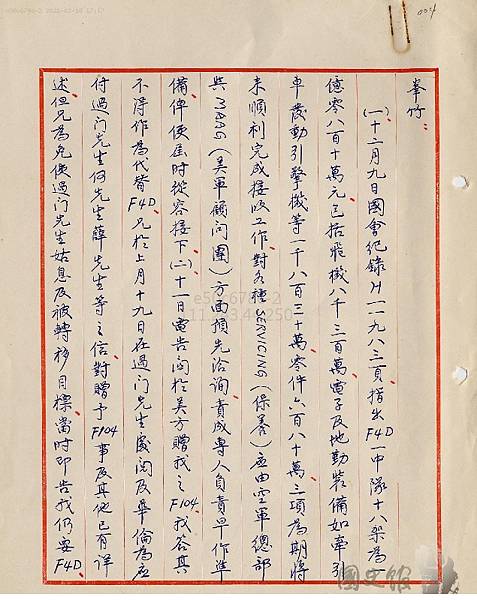 004
峯竹：
(一)十二月九日國會紀錄H一一九八三頁指出F4D一中隊十八架為一
億零八百十萬元已括飛機八千三百萬電子及地勤裝備如牽引
車發動引擎機等一千八百三十萬零件六百八十萬三項為期將
來順利完成接收工作、對各種SERVICING(保養)應由空軍總部
與MAAG(美軍顧問團)方面預先洽詢責成專人負責早作準
備俾使屆時從容接下(二)十一日電告關於美方贈我之F104、我答其
不得作為代替F4D兄於上月十九日在過门先生處閱及華倫為應
付過门先生何先生薛先生等之信對贈予F104事及其他已有詳
述但兄為免使過门先生姑息及被轉移目標當時即告我仍要F4D、
國史館